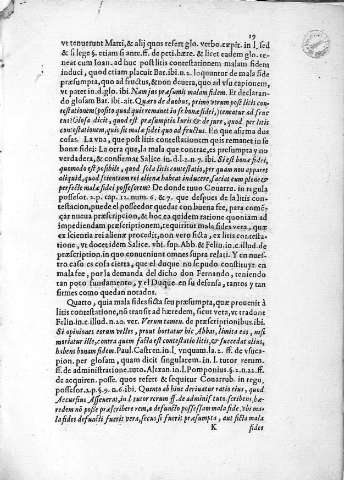 19
vt tenuerunt Matri, & alij quos refert glo. verbo. cœpit. in l. sed
& si lege §. etiam si ante. ff. de peti. hære. & licet eadem glo. te-
neat cum Ioan. ad huc post litis contestationem malam fidem
induci, quod etiam placuit Bat. ibi n. 2. loquuntur de mala fide
præsumpta, quo ad fructus, & non de vera, quo ad vsucapionem,
vt patet in d. glo. ibi Nam ius præsumit malam fidem. Et declaran-
do glosam Bat. ibi. ait Quæro de duobus, primo vtrum post litis con-
testationem (posito quod quis remaneat in se bonæ fidei) teneatur ad fru-
ctus? Glosa dicit, quod est præsumptio iuris & de iure, quod per litis
contestationem, quis sit malæ fidei quo ad fructus. En que afirma dos
cosas. La vna, que post litis contestationem quis remanet in se
bonæ fidei: La otra que, la mala que contrae, es presumpta y no
verdadera, & confirmat Salice. in d. l. 2. n. 7. ibi. Si est bonæ fidei,
quomodo est possibile, quod sola litis contestatio, per quam non apparet
aliquid, quod scientiam rei alienæ habeat inducere, faciat eum plene &
perfecte malæ fidei possessorem? De donde tuuo Couarru. in regula
possessor. 2. p. cap. 12. num. 6. & 7. que despues de la litis con-
testacion, puede el posseedor quedar con buena fee, pera comē-
çar nueua præscription, & hoc ea quidem ratione quoniam ad
impediendam præscriptionem, requiritur mala fides vera, quæ
ex scientia rei alienæ procedit, non vero ficta, ex litis contesta-
tione, vt docet idem Salice. vbi sup. Abb. & Felin. in c. illud. de
præscription. in quo conueniunt omnes supra relati. Y en nues-
tro caso es cosa cierta, que el duque no se pudo constituyr en
mala fee, por la demanda del dicho don Fernando, teniendo
tan poco fundamento, y el Duque en su defensa, tantos y tan
firmes como quedan notados.
Quarto, quia mala fides ficta seu præsumpta, quæ prouenit à
litis contestatione, nō transit ad hæredem, sicut vera, vt tradunt
Felin. in c. illud. n. 20. ver. Verum tamen. de præscriptionibus. ibi.
Si opiniones essent velles, prout hortatur hic Abbas, limita eos, nisi
moriatur ille, contra quem facta est contestatio litis, & succedat alius,
habens bonam fidem. Paul. Castren. in l. ynquam. la 2. ff. de vsuca-
pion. per glosam, quam dicit singularem. in l. tutor rerum.
ff. de administratione. tuto. Alexan. in l. Pomponius §. 2. n. 21. ff.
de acquiren. posse. quos refert & sequitur Couarrub. in regu.
possessor. 2. p. §. 9. n. 6. ibi. Quinto ab hinc deriuatur ratio eius, quod
Accursius Asseuerat, in l. tutor rerum ff. de administ. tuto. scribens, hæ-
redem nō posse præscribere rem, a defuncto possessam mala fide. Vbi ma-
la fides defuncti fuerit vera, secus si fuerit præsumpta, aut ficta mala
K fides